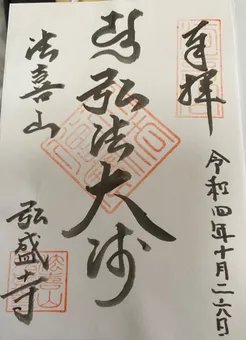 奉拝
令和四年十月二十六日
弘法大師
法喜山
弘盛寺